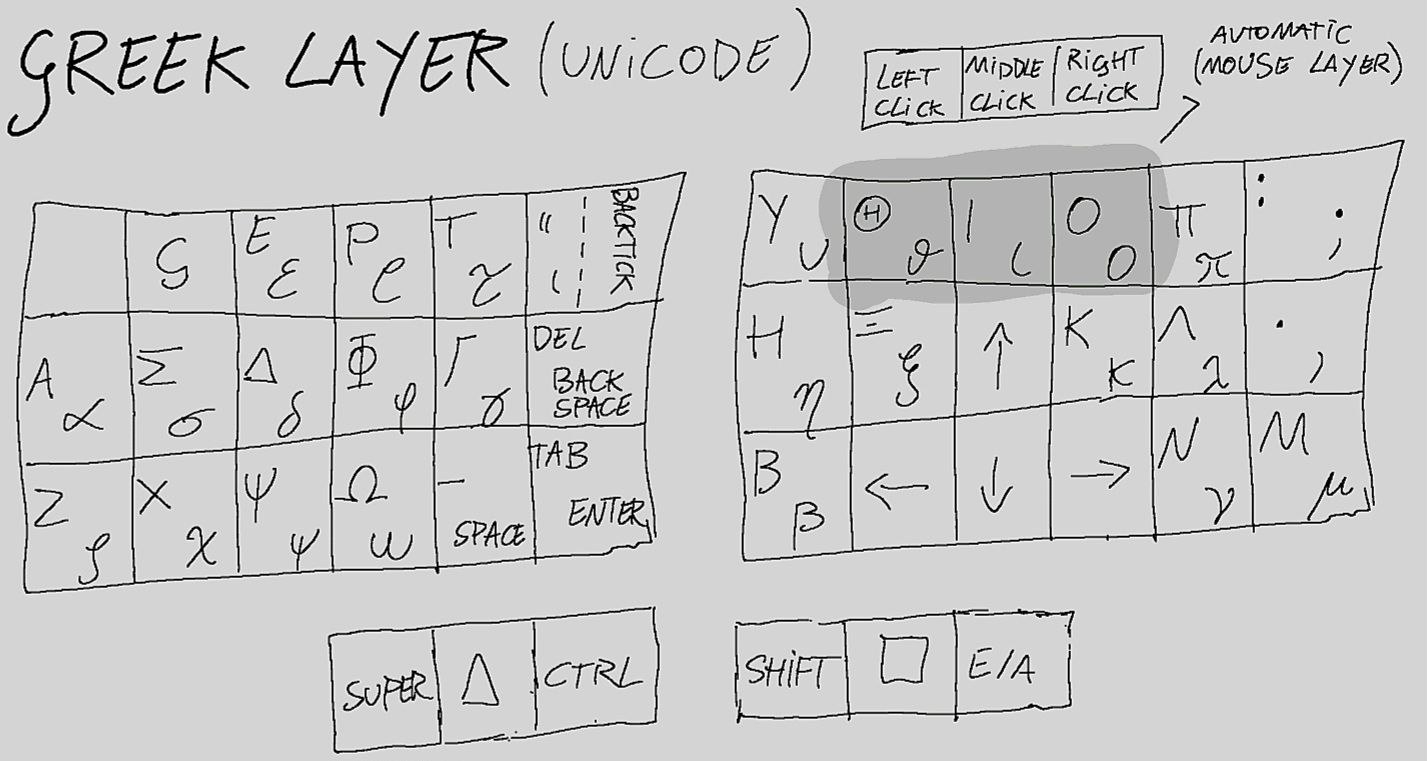 GREEK LAYER (UNICODE)
LEFT CLICK
MIDDLE CLICK
RIGHT CLICK
AUTOMATIC
(MOUSE LAYER)
ς Ε ε Ρ ρ Τ τ " ' BACKTICK
Α α Σ σ Δ δ Φ φ Γ γ DEL BACK SPACE
Ζ ζ Χ χ Ψ ψ Ω ω – SPACE TAB ENTER
Υ υ Θ θ Ι ι Ο ο Π π : . ;
Η η Ξ ξ ↑ Κ κ Λ λ . ,
Β β ← ↓ → Ν ν Μ μ
SUPER Δ CTRL
SHIFT □ E/A